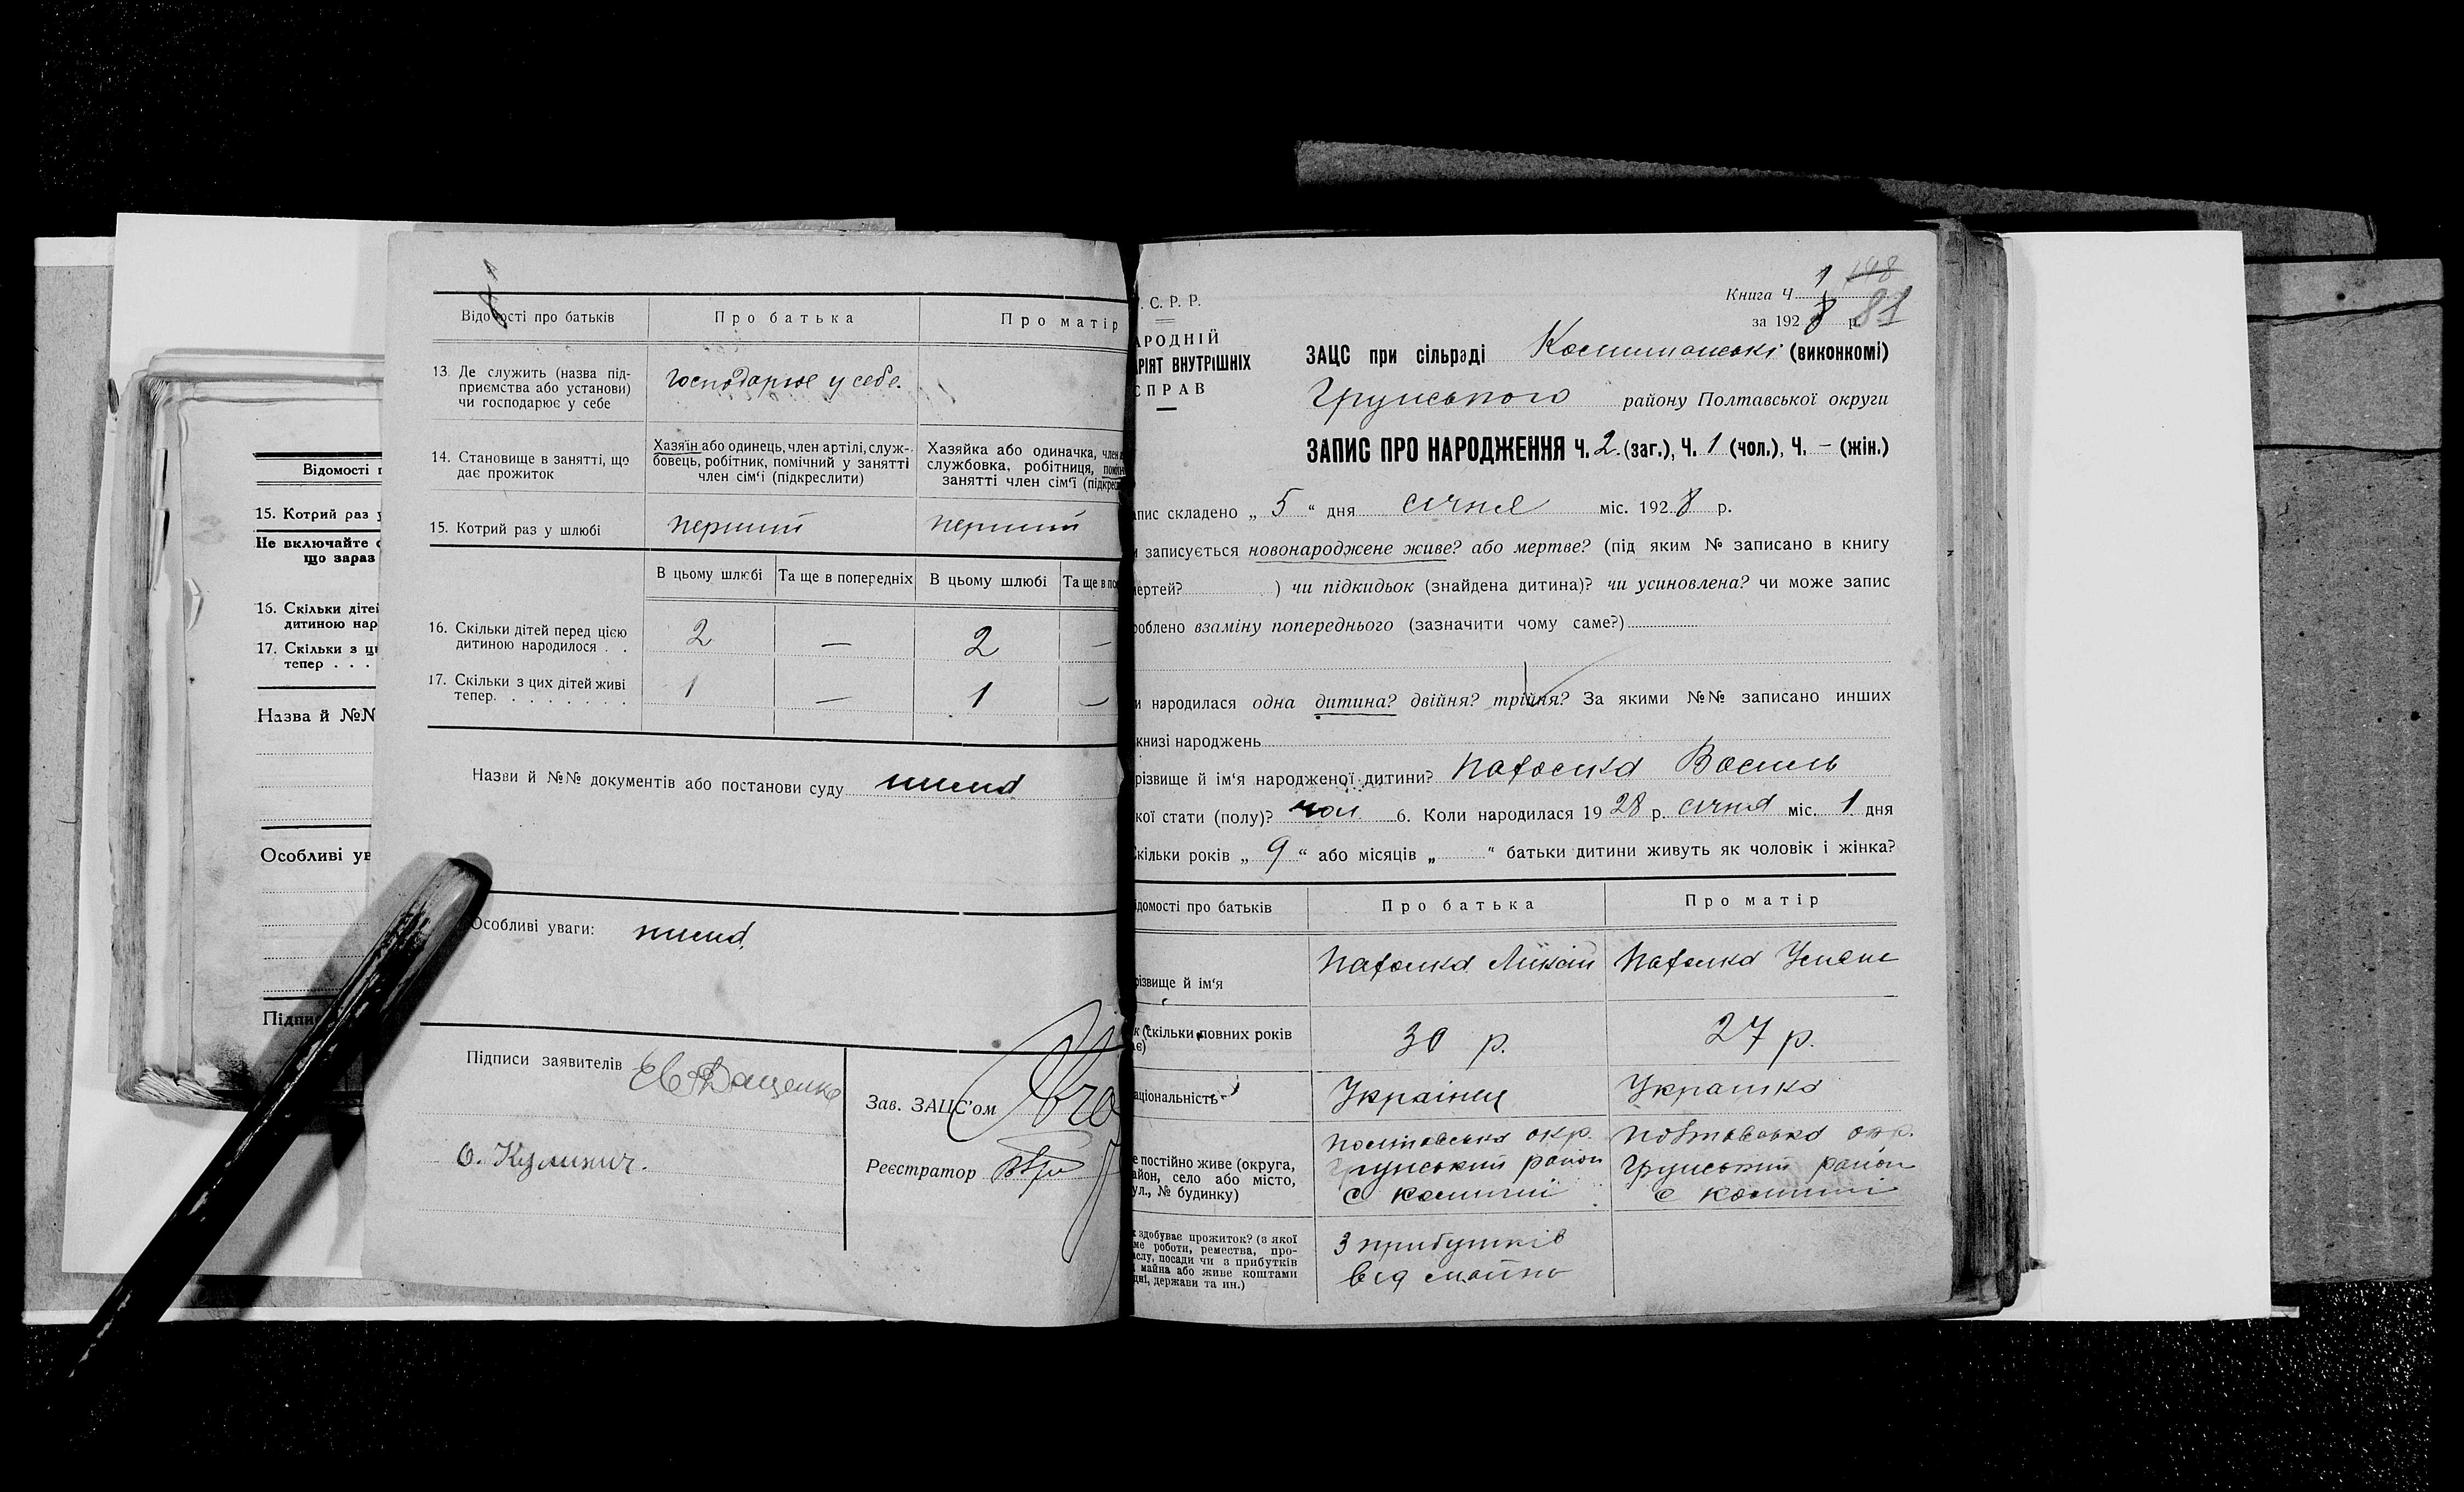 Відомості п
15. Котрий раз у
Не включайте
що зараз
16. Скільки діте
дитиною нар
17. Скільки з ц
тепер . . .
Назва й №№
Особливі ув
Підпи
Відомості про батьків
Про батька
Про матір
13. Де служить (назва під-
приємства або установи)
чи господарює у себе
господарює у себе.
14. Становище в занятті, що
дає прожиток
Хазяїн або одинець, член артілі, служ-
бовець, робітник, помічний у занятті
член сім'ї (підкреслити)
Хазяйка або одиначка, член
службовка, робітниця,
занятті член сім'ї (підкрес
15. Котрий раз у шлюбі
перший
перший
В цьому шлюбі
Та ще в попередніх
В цьому шлюбі
Та ще в по
16. Скільки дітей перед цією
дитиною народилося . .
2 — 2 —
17. Скільки з цих дітей живі
тепер. . . . . . . .
1 — 1 —
Назви й №№ документів або постанови суду нема
Особливі уваги: нема
Підписи заявителів
О. Кулинич.
Зав. ЗАЦС'ом
Реєстратор
С. Р. Р.
АРОДНІЙ
АРІЯТ ВНУТРІШНІХ
СПРАВ
Книга Ч. 1 148
за 1928 р. 81
ЗАЦС при сільраді (виконкомі)
Грунського району Полтавської округи
ЗАПИС ПРО НАРОДЖЕННЯ Ч. 2. (заг.), Ч. 1 (чол.), Ч. — (жін.)
апис складено „ 5 “ дня січня міс. 1928 р.
и записується новонароджене живе? або мертве? (під яким № записано в книгу
мертей? ) чи підкидьок (знайдена дитина)? чи усиновлена? чи може запис
роблено взаміну попереднього (зазначити чому саме?)
и народилася одна дитина? двійня? трійня? За якими №№ записано инших
книзі народжень
різвище й ім'я народженої дитини? Василь
кої стати (полу)? чол. 6. Коли народилася 1928 р. січня міс. 1 дня
кільки років „ 9 “ або місяців „ “ батьки дитини живуть як чоловік і жінка?
ідомості про батьків
Про батька
Про матір
різвище й ім'я
к (скільки повних років
ає)
30 р.
27 р.
аціональність
Українец
Украінка
е постійно живе (округа,
айон, село або місто,
ул., № будинку)
Полтавська окр.
Грунський район
Полтавська окр.
Грунський район
к здобуває прожиток? (з якої
ме роботи, ремества, про-
ислу, посади чи з прибутків
майна або живе коштами
дні, держави та ин.)
З прибутків
від майна